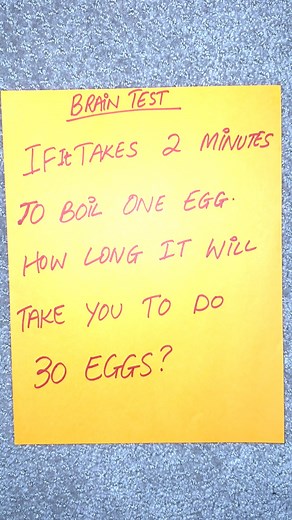 BRAIN TEST
IF It TAKES 2 MINUTES
TO BOIL ONE EGG.
HOW LONG IT WILL
TAKE YOU TO DO
30 EGGS?